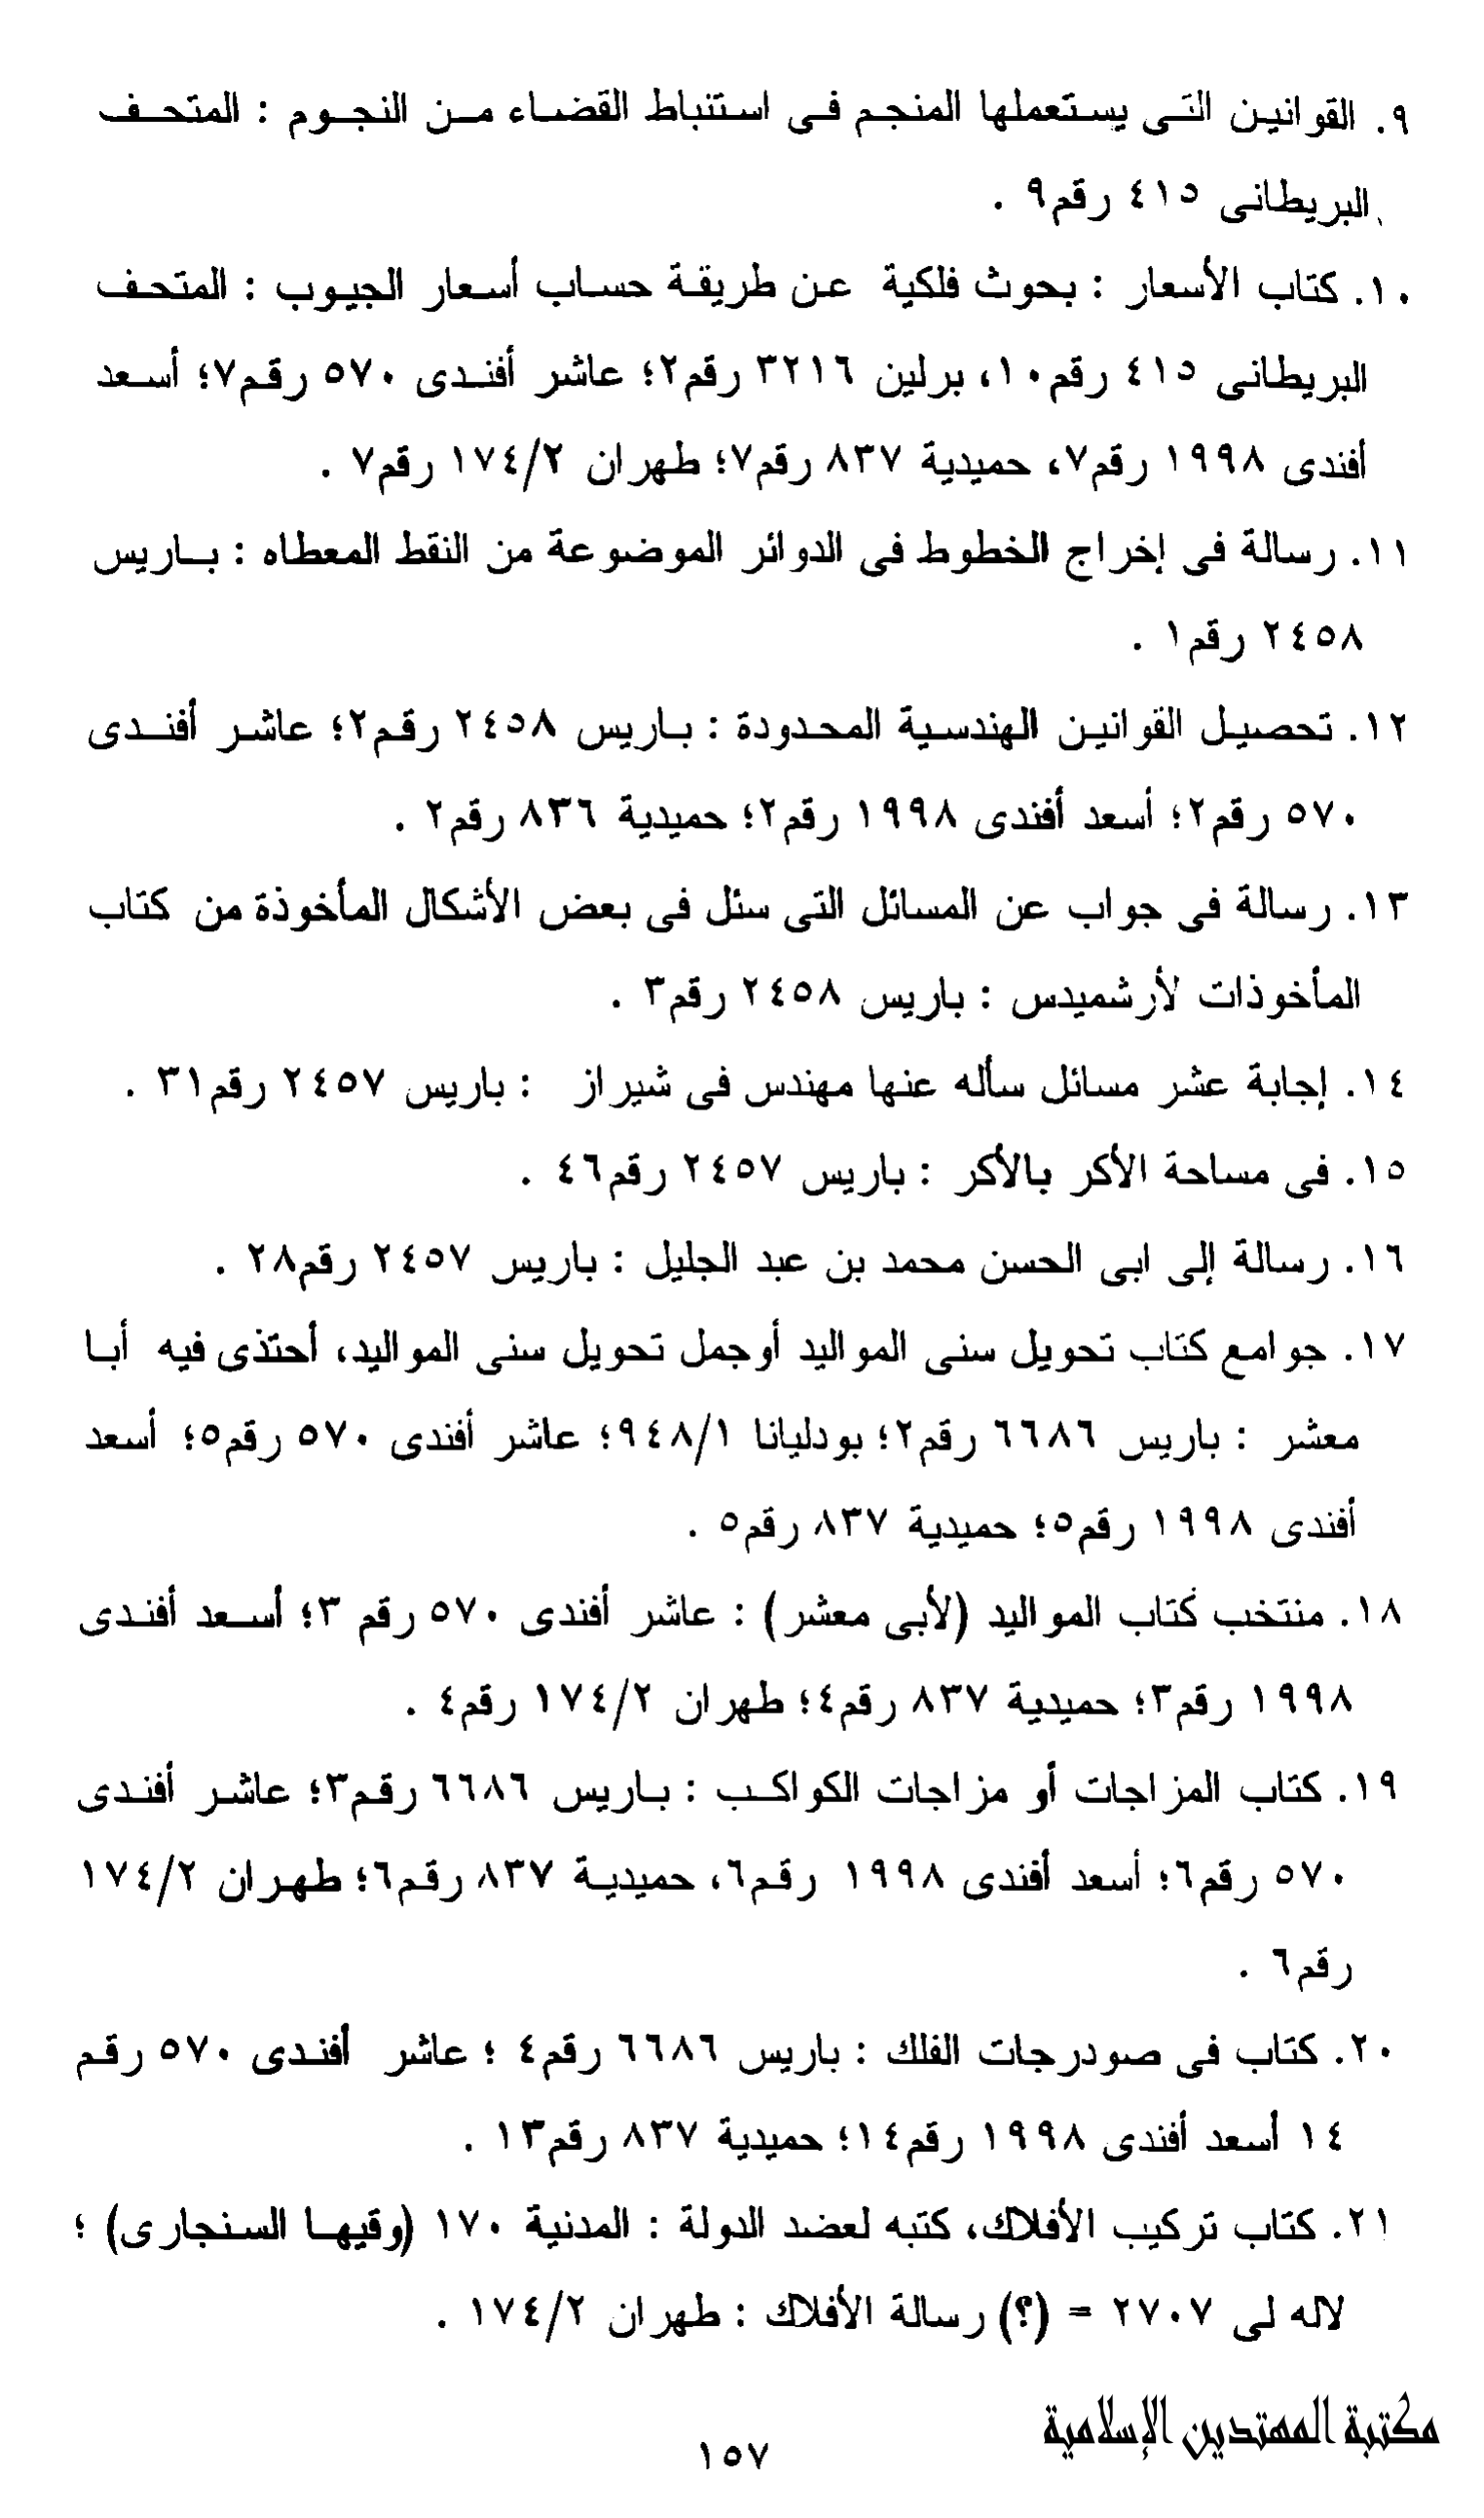 ٩. القوانين التى يستعملها المنجم فى استنباط القضاء من النجوم : المتحف
البريطانى ٤١٥ رقم٩ .
١٠. كتاب الأسعار : بحوث فلكية عن طريقة حساب أسعار الجيوب : المتحف
البريطانى ٤١٥ رقم١٠، برلين ٣٢١٦ رقم٢؛ عاشر أفندى ٥٧٠ رقم٧؛ أسعد
أفندى ١٩٩٨ رقم٧، حميدية ٨٣٧ رقم٧؛ طهران ١٧٤/٢ رقم٧ .
١١. رسالة فى إخراج الخطوط فى الدوائر الموضوعة من النقط المعطاه : باريس
٢٤٥٨ رقم١ .
١٢. تحصيل القوانين الهندسية المحدودة : باريس ٢٤٥٨ رقم٢؛ عاشر أفندى
٥٧٠ رقم٢؛ أسعد أفندى ١٩٩٨ رقم٢؛ حميدية ٨٣٦ رقم٢ .
١٣. رسالة فى جواب عن المسائل التى سئل فى بعض الأشكال المأخوذة من كتاب
المأخوذات لأرشميدس : باريس ٢٤٥٨ رقم٣ .
١٤. إجابة عشر مسائل سأله عنها مهندس فى شيراز : باريس ٢٤٥٧ رقم٣١ .
١٥. فى مساحة الأكر بالأكر : باريس ٢٤٥٧ رقم٤٦ .
١٦. رسالة إلى ابى الحسن محمد بن عبد الجليل : باريس ٢٤٥٧ رقم٢٨ .
١٧. جوامع كتاب تحويل سنى المواليد أوجمل تحويل سنى المواليد، أحتذى فيه أبا
معشر : باريس ٦٦٨٦ رقم٢؛ بودليانا ٩٤٨/١؛ عاشر أفندى ٥٧٠ رقم٥؛ أسعد
أفندى ١٩٩٨ رقم٥؛ حميدية ٨٣٧ رقم٥ .
١٨. منتخب كتاب المواليد (لأبى معشر) : عاشر أفندى ٥٧٠ رقم ٣؛ أسعد أفندى
١٩٩٨ رقم٣؛ حميدية ٨٣٧ رقم٤؛ طهران ١٧٤/٢ رقم٤ .
١٩. كتاب المزاجات أو مزاجات الكواكب : باريس ٦٦٨٦ رقم٣؛ عاشر أفندى
٥٧٠ رقم٦؛ أسعد أفندى ١٩٩٨ رقم٦، حميدية ٨٣٧ رقم٦؛ طهران ١٧٤/٢
رقم٦ .
٢٠. كتاب فى صودرجات الفلك : باريس ٦٦٨٦ رقم٤ ؛ عاشر أفندى ٥٧٠ رقم
١٤ أسعد أفندى ١٩٩٨ رقم١٤؛ حميدية ٨٣٧ رقم١٣ .
٢١. كتاب تركيب الأفلاك، كتبه لعضد الدولة : المدنية ١٧٠ (وقيها السنجارى) ؛
لاله لى ٢٧٠٧ = (؟) رسالة الأفلاك : طهران ١٧٤/٢ .
مكتبة المهتدين الإسلامية
١٥٧